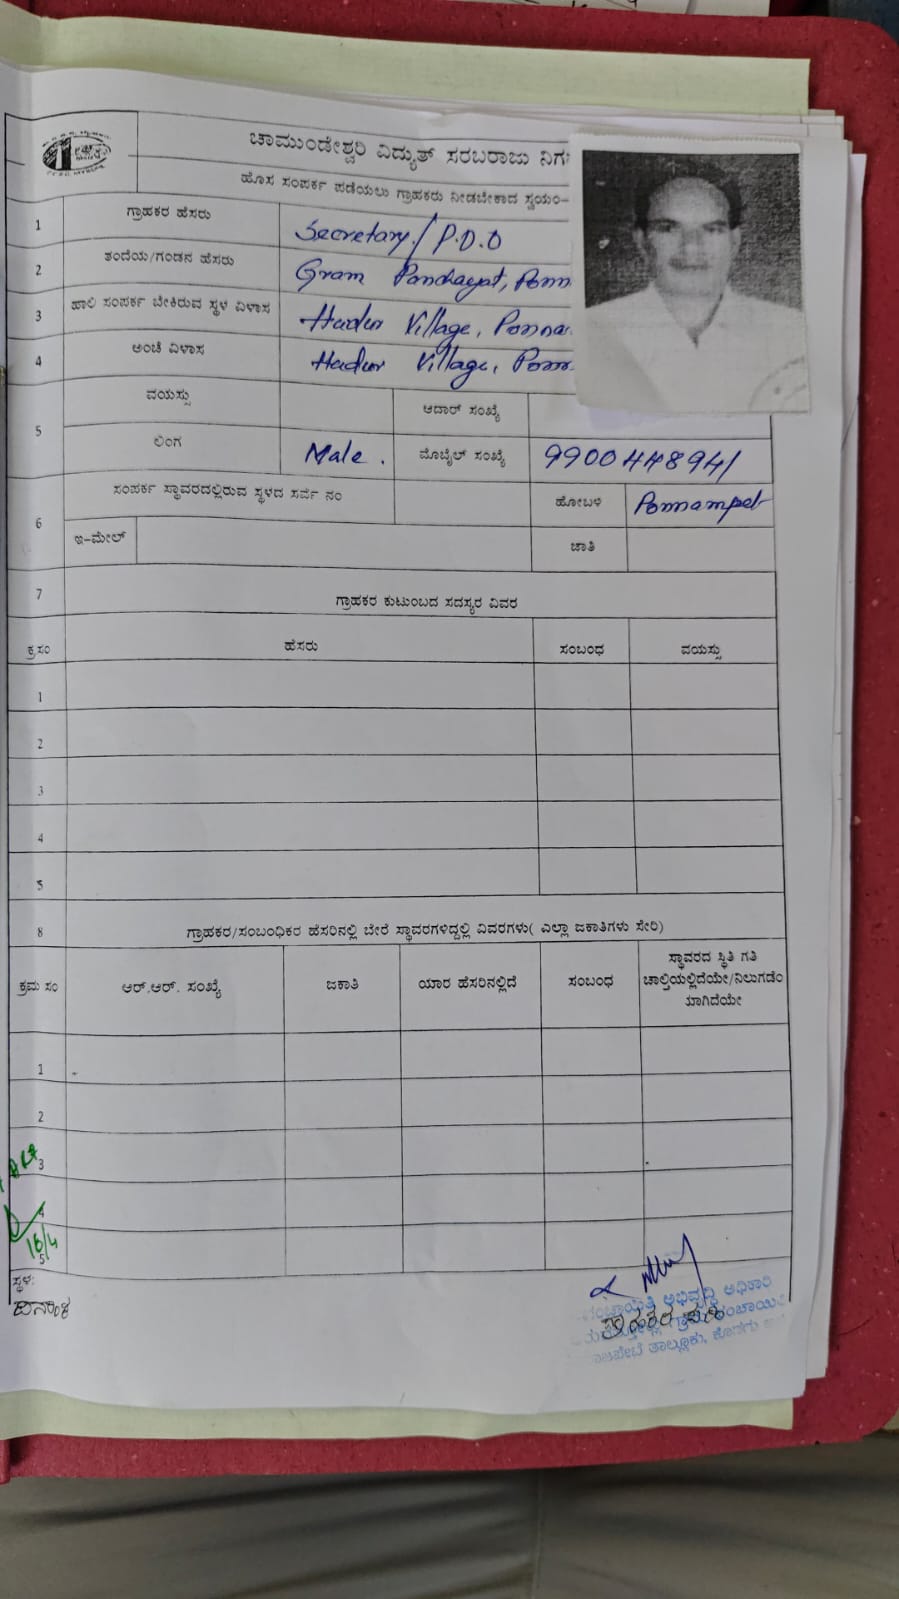 ಚಾಮುಂಡೇಶ್ವರಿ ವಿದ್ಯುತ್ ಸರಬರಾಜು ನಿಗ
ಹೊಸ ಸಂಪರ್ಕ ಪಡೆಯಲು ಗ್ರಾಹಕರು ನೀಡಬೇಕಾದ ಸ್ವಯಂ-
1 ಗ್ರಾಹಕರ ಹೆಸರು Secretary/P.D.O
2 ತಂದೆಯ/ಗಂಡನ ಹೆಸರು Gram Panchayat, Ponn
3 ಹಾಲಿ ಸಂಪರ್ಕ ಬೇಕಿರುವ ಸ್ಥಳ ವಿಳಾಸ Hadur Village, Ponna
4 ಅಂಚೆ ವಿಳಾಸ Hadur Village, Ponn
5 ವಯಸ್ಸು ಆದಾರ್ ಸಂಖ್ಯೆ
ಲಿಂಗ Male. ಮೊಬೈಲ್ ಸಂಖ್ಯೆ 9900448941
6 ಸಂಪರ್ಕ ಸ್ಥಾವರದಲ್ಲಿರುವ ಸ್ಥಳದ ಸರ್ವೆ ನಂ ಹೋಬಳಿ Ponnampet
ಇ-ಮೇಲ್ ಜಾತಿ
7 ಗ್ರಾಹಕರ ಕುಟುಂಬದ ಸದಸ್ಯರ ವಿವರ
ಕ್ರಸಂ ಹೆಸರು ಸಂಬಂಧ ವಯಸ್ಸು
1
2
3
4
5
8 ಗ್ರಾಹಕರ/ಸಂಬಂಧಿಕರ ಹೆಸರಿನಲ್ಲಿ ಬೇರೆ ಸ್ಥಾವರಗಳಿದ್ದಲ್ಲಿ ವಿವರಗಳು( ಎಲ್ಲಾ ಜಕಾತಿಗಳು ಸೇರಿ)
ಕ್ರಮ ಸಂ ಆರ್.ಆರ್. ಸಂಖ್ಯೆ ಜಕಾತಿ ಯಾರ ಹೆಸರಿನಲ್ಲಿದೆ ಸಂಬಂಧ ಸ್ಥಾವರದ ಸ್ಥಿತಿ ಗತಿ
ಚಾಲ್ತಿಯಲ್ಲಿದೆಯೇ/ನಿಲುಗಡೆ
ಯಾಗಿದೆಯೇ
1
2
3
4
16/4
5
ಸ್ಥಳ:
ದಿನಾಂಕ
ಪಂಚಾಯಿತಿ ಅಭಿವೃದ್ಧಿ ಅಧಿಕಾರಿ
ಗ್ರಾಹಕರ ಸಹಿ
ಗ್ರಾಮ ಪಂಚಾಯಿತಿ
ತಾಲ್ಲೂಕು, ಕೊಡಗು